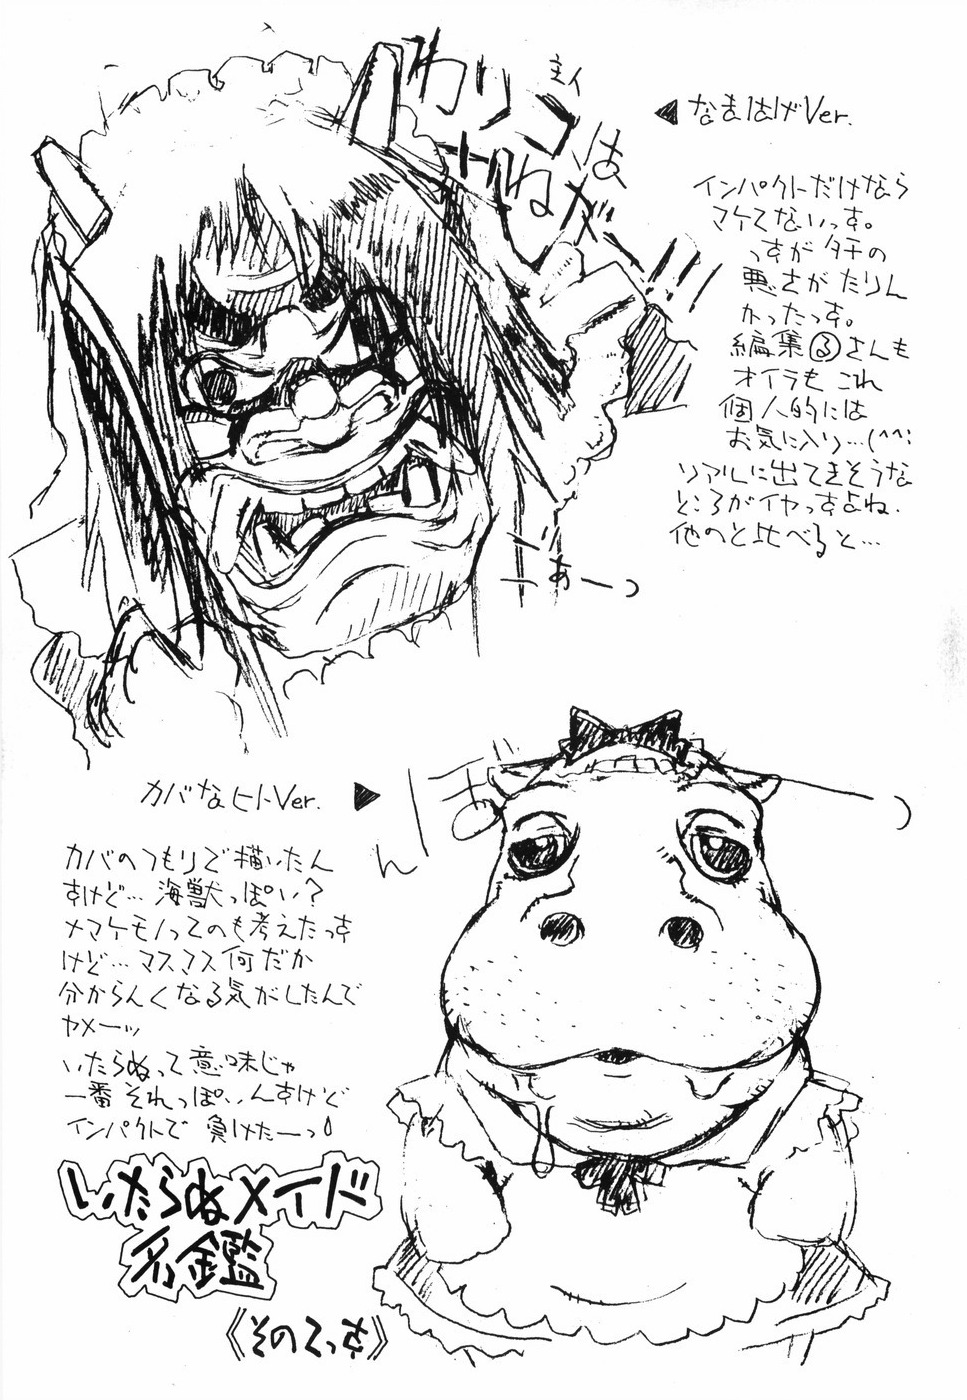 わりゴ
主イ
は
ねがー!!
◀なまはげVer.
インパクトだけなら
マケてないっす。
っすが タチの
悪さが たりん
かったっす。
編集るさんも
オイラも これ
個人的には
お気に入り…(^^;
リアルに出てきそうな
ところがイヤっすよね.
他のと比べると…
ぼーっ
カバなヒトVer. ▶
カバのつもりで描いたん
すけど…海獣っぽい?
ナマケモノってのも考えたっす
けど…マスマス何だか
分からんくなる気がしたんで
ヤメーッ
いたらぬって意味じゃ
一番それっぽいんすけど
インパクトで 負けたーっ!
いたらぬメイド
名鑑
《そのてっす》